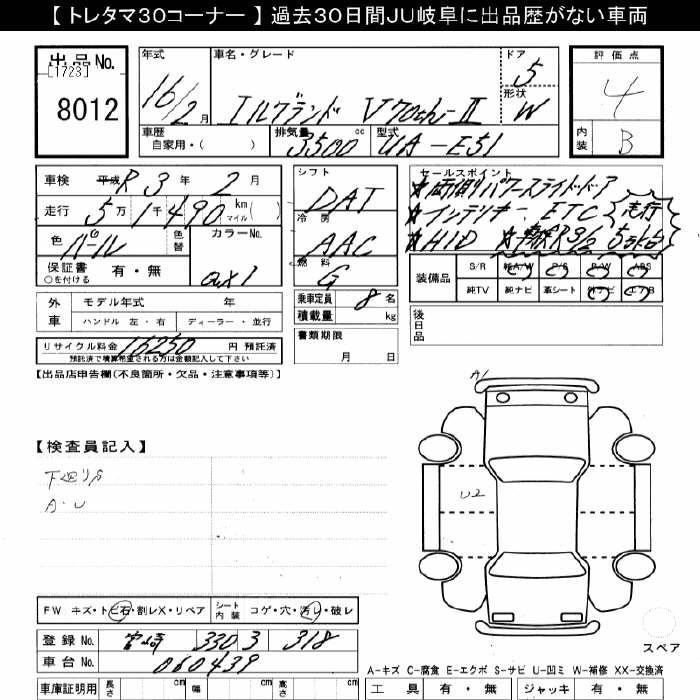 【 トレタマ30コーナー 】 過去30日間JU岐阜に出品歴がない車両
出品No.
[1723]
8012
年式
16/2 月
車名・グレード
エルグランド V70th-II
ドア
5
形状
W
車歴
自家用・( )
排気量
3500 cc
型式
UA-E51
評価点
4
内装
B
車検 平成 R3年 2月
走行 5万1千490 km マイル( )
色 パール 色替
カラーNo.
QX1
保証書 有・無
○を付ける
外車 モデル年式 年
ハンドル 左・右 ディーラー・並行
リサイクル料金 15250 円 預託済
預託済で積算希望される方は金額記入して下さい
シフト
DAT
冷房
AAC
燃料
G
乗車定員 8 名
積載量 kg
書類期限
月 日
セールスポイント
★両側パワースライドドア
★インテリキー ETC 走行
★HID ★車検R3/2 5万k台
装備品 S/R 純A/W P/S P/W ABS
純TV 純ナビ 革シート 純ナビ エアB
後日品
【出品店申告欄(不良箇所・欠品・注意事項等)】
【検査員記入】
下回りS
A・U
A1
U2
FW キズ・トビ石・割レX・リペア シート内装 コゲ・穴・汚レ・破レ
登録No. 宮崎 330 3 318
車台No. 060439
車庫証明用 長さ cm 幅 cm 高さ cm
スペア
A-キズ C-腐食 E-エクボ S-サビ U-凹ミ W-補修 XX-交換済
工具 有・無 ジャッキ 有・無